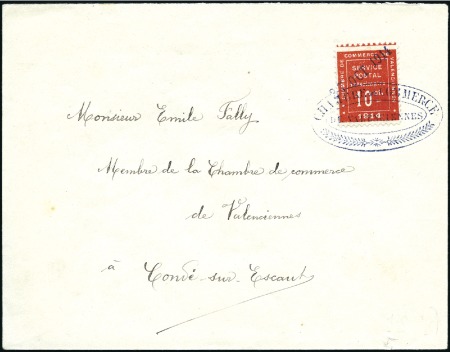 CHAMBRE DE COMMERCE
VALENCIENNES
SERVICE
POSTAL
10 c.
1914
CHAMBRE DE COMMERCE
DE VALENCIENNES
Monsieur Emile Fally
Membre de la Chambre de commerce
de Valenciennes
à Condé-sur-Escaut